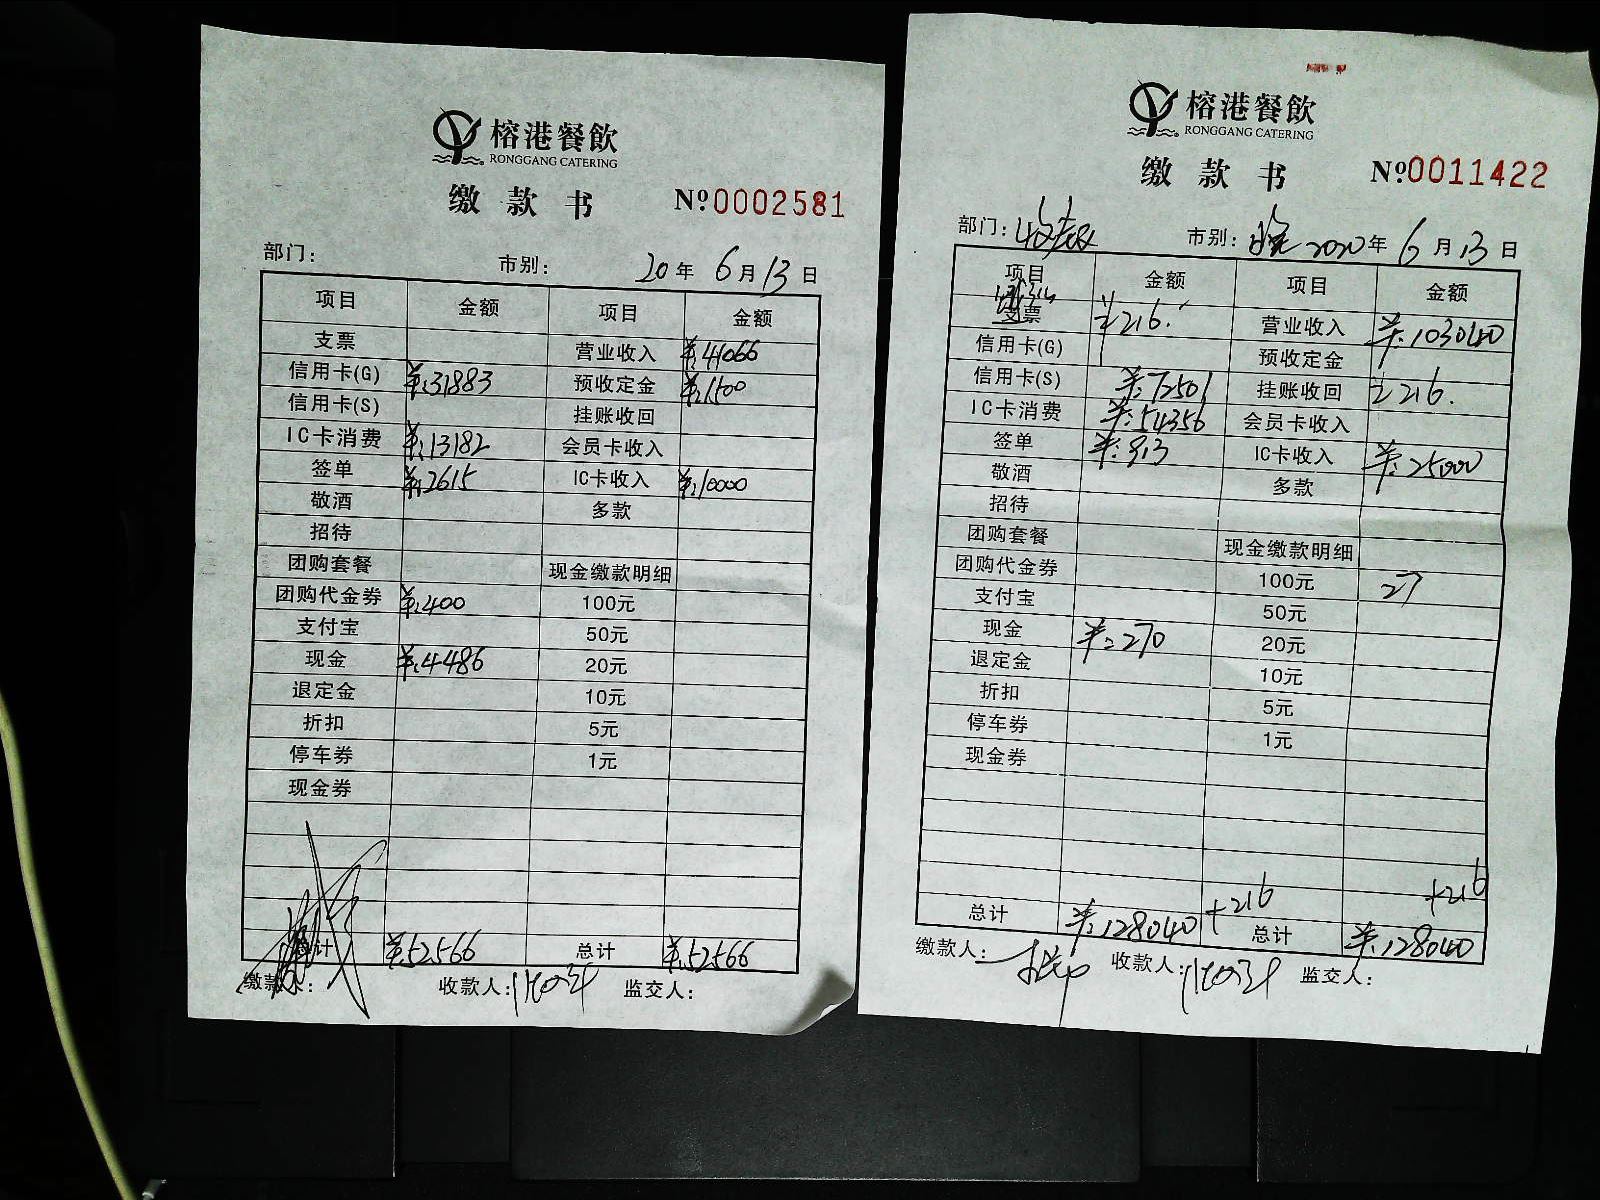 榕港餐飲
RONGGANG CATERING
缴款书 №0002581
部门: 市别: 20年6月13日
项目 金额 项目 金额
支票 营业收入 ¥:41066
信用卡(G) ¥:31883 预收定金 ¥:1500
信用卡(S) 挂账收回
IC卡消费 ¥:13182 会员卡收入
签单 ¥:2615 IC卡收入 ¥:10000
敬酒 多款
招待
团购套餐 现金缴款明细
团购代金券 ¥:400 100元
支付宝 50元
现金 ¥:4486 20元
退定金 10元
折扣 5元
停车券 1元
现金券
总计 ¥:52566 总计 ¥:52566
缴款人: 收款人: 监交人:
榕港餐飲
RONGGANG CATERING
缴款书 №0011422
部门: 市别: 晚 2020年6月13日
项目 金额 项目 金额
支票 ¥216. 营业收入 ¥:103040
信用卡(G) 预收定金
信用卡(S) ¥:72501 挂账收回 216.
IC卡消费 ¥:54356 会员卡收入
签单 ¥:913 IC卡收入 ¥:25000
敬酒 多款
招待
团购套餐 现金缴款明细
团购代金券 100元 27
支付宝 50元
现金 ¥:270 20元
退定金 10元
折扣 5元
停车券 1元
现金券
+216 +216
总计 ¥:128040 总计 ¥:128040
缴款人: 收款人: 监交人: